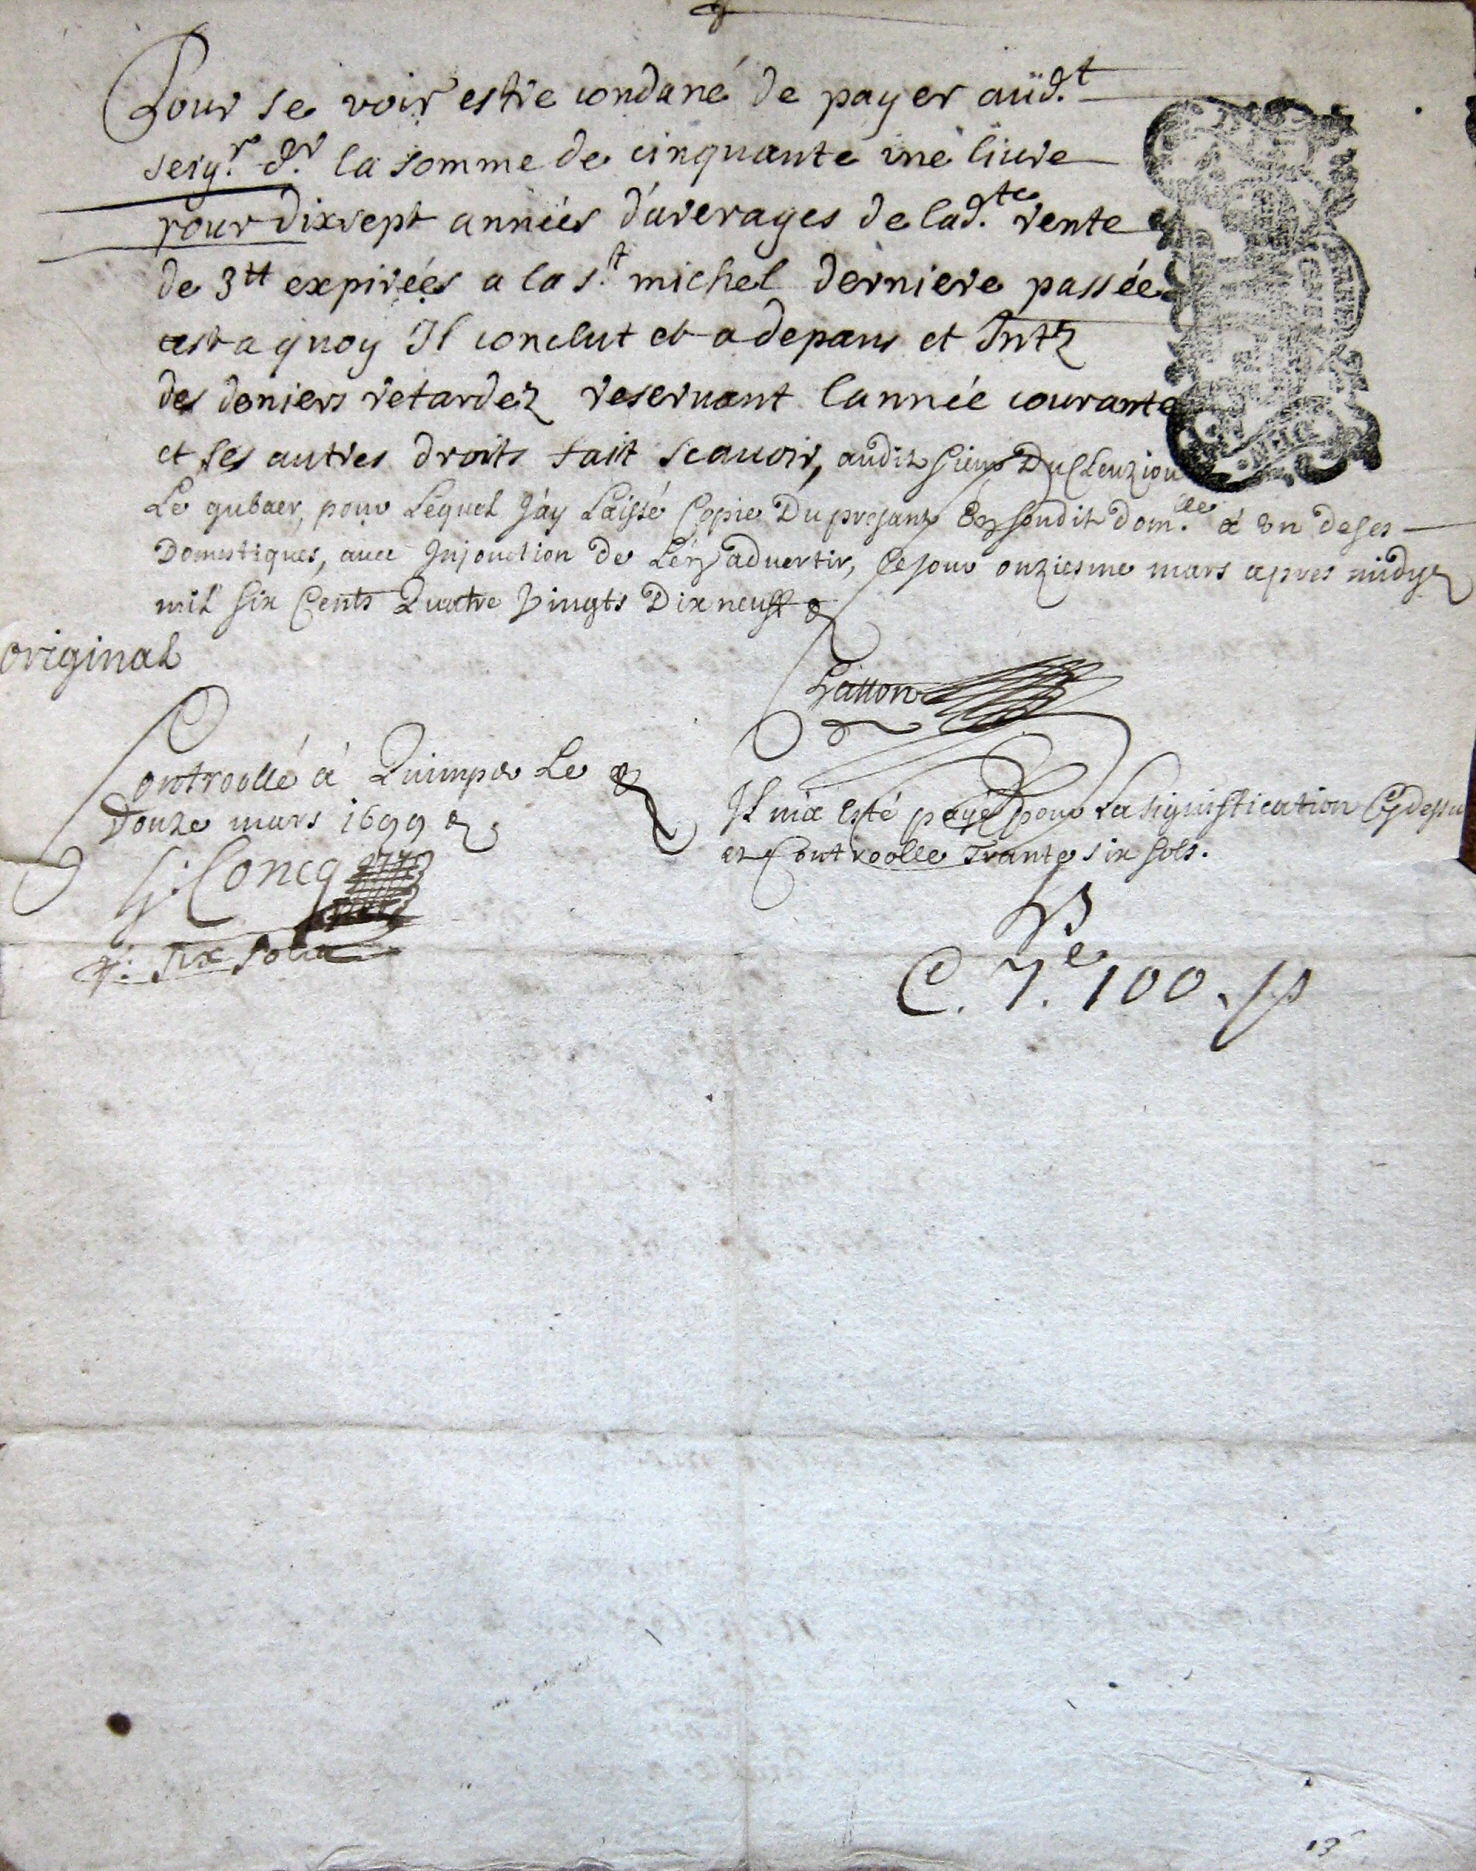 Pour se voir estre condané de payer aud.t
seigr. dr. la somme de cinquante une livre
pour dixsept années d'arerages de lad.te rente
de 3tt expirées a la s.t michel derniere passée
cest a quoy Il conclut et a depans et Intz
des deniers retardez reservant lannée courante
et ses autres droits fait scavoir, audit sieur Du Cleuziou
Le gubaer, pour Lequel J'ay Laissé Copie Du presant En soudit dom.lle a un de ses
Domestiques, avec Injonction de L'en advertir, Ce jour onziesme mars apres midy
mil six Cents Quatre Vingts Dix neuff
original
Controollé á Quimper Le
Douze mars 1699
G: Concq
R: six sols
Il m'a esté payé pour La signiffication Cy dessu
et Controolle Trante six sols.
C. 7.e 100.
13